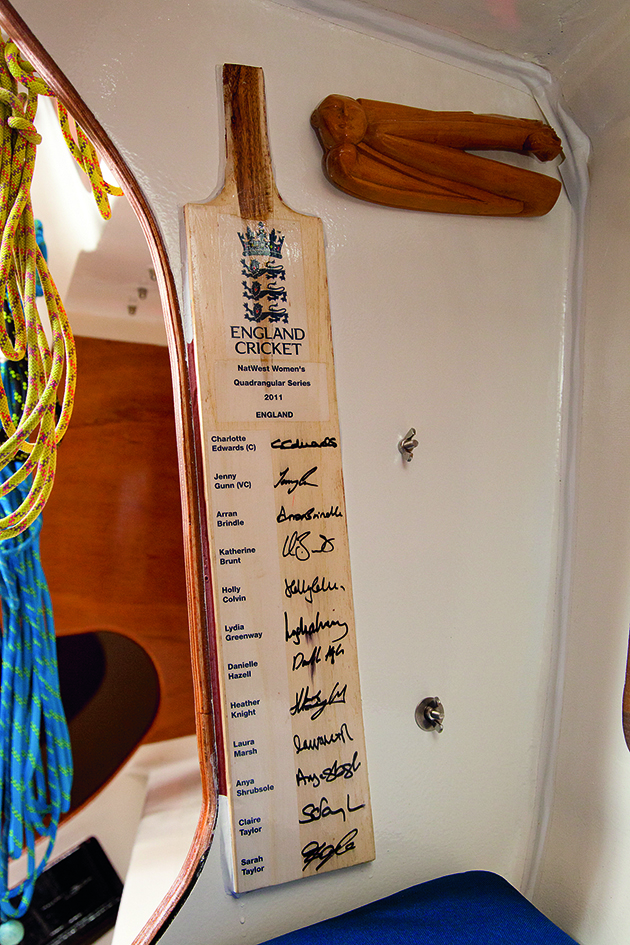 ENGLAND
CRICKET
NatWest Women's
Quadrangular Series
2011
ENGLAND
Charlotte
Edwards (C)
CEdwards
Jenny
Gunn (VC)
Arran
Brindle
Arran Brindle
Katherine
Brunt
Holly
Colvin
Lydia
Greenway
Danielle
Hazell
Heather
Knight
Laura
Marsh
Anya
Shrubsole
Claire
Taylor
Sarah
Taylor